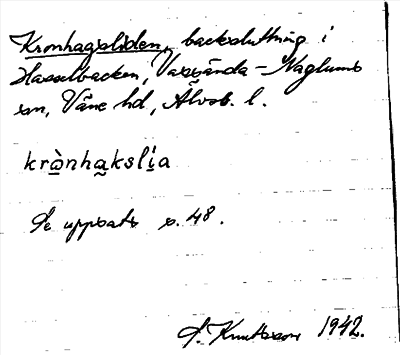 Kronhagsliden, backsluttning i
Hasselbacken, Vassända-Naglums
sn, Väne hd, Älvsb. l.
krònhakslia
Se uppsats s. 48.
S. Knutsson 1942.